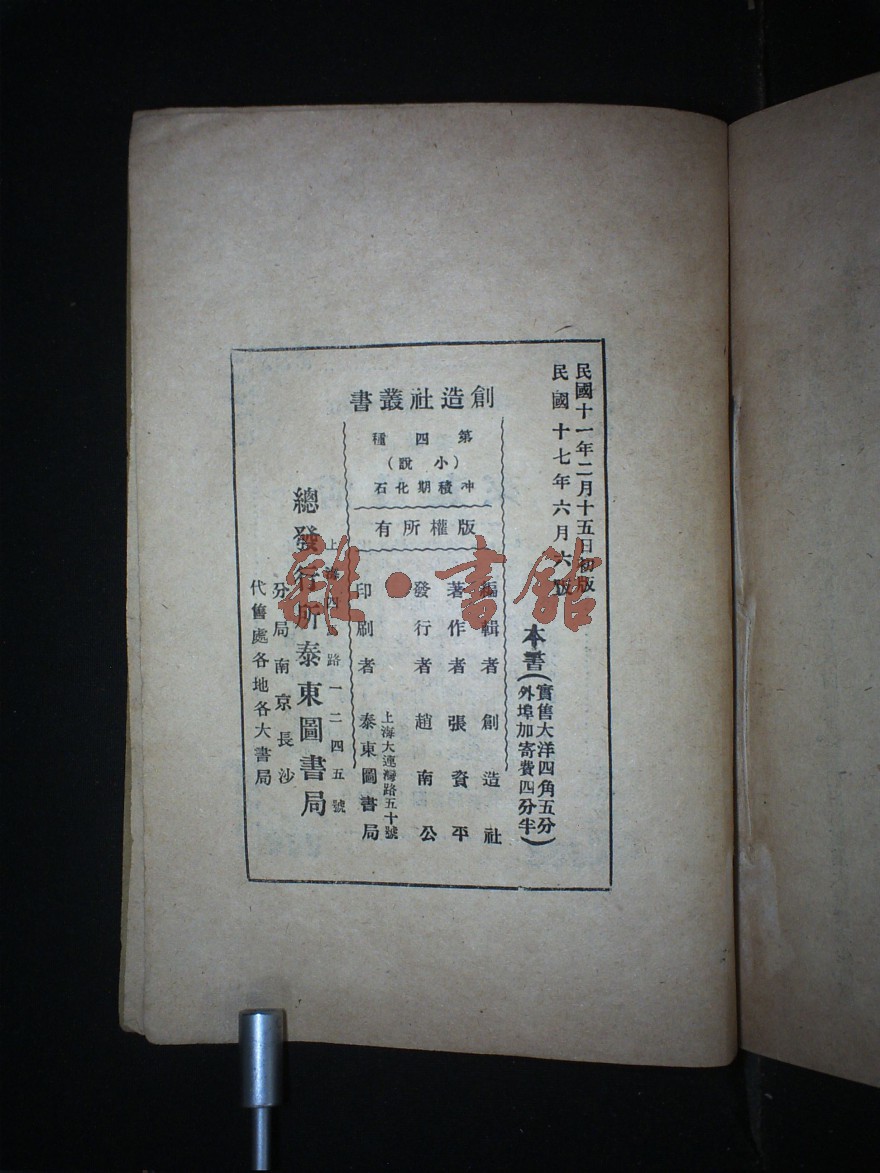 民國十一年二月十五日初版
民國十七年六月六版
本書(實售大洋四角五分
外埠加寄費四分半)
創造社叢書
第四種
(小說)
冲積期化石
版權所有
編輯者 創造社
著作者 張資平
發行者 趙南公
上海大連灣路五十號
印刷者 泰東圖書局
上海四馬路一二四五號
總發行所泰東圖書局
分局南京長沙
代售處各地各大書局
雜·書館